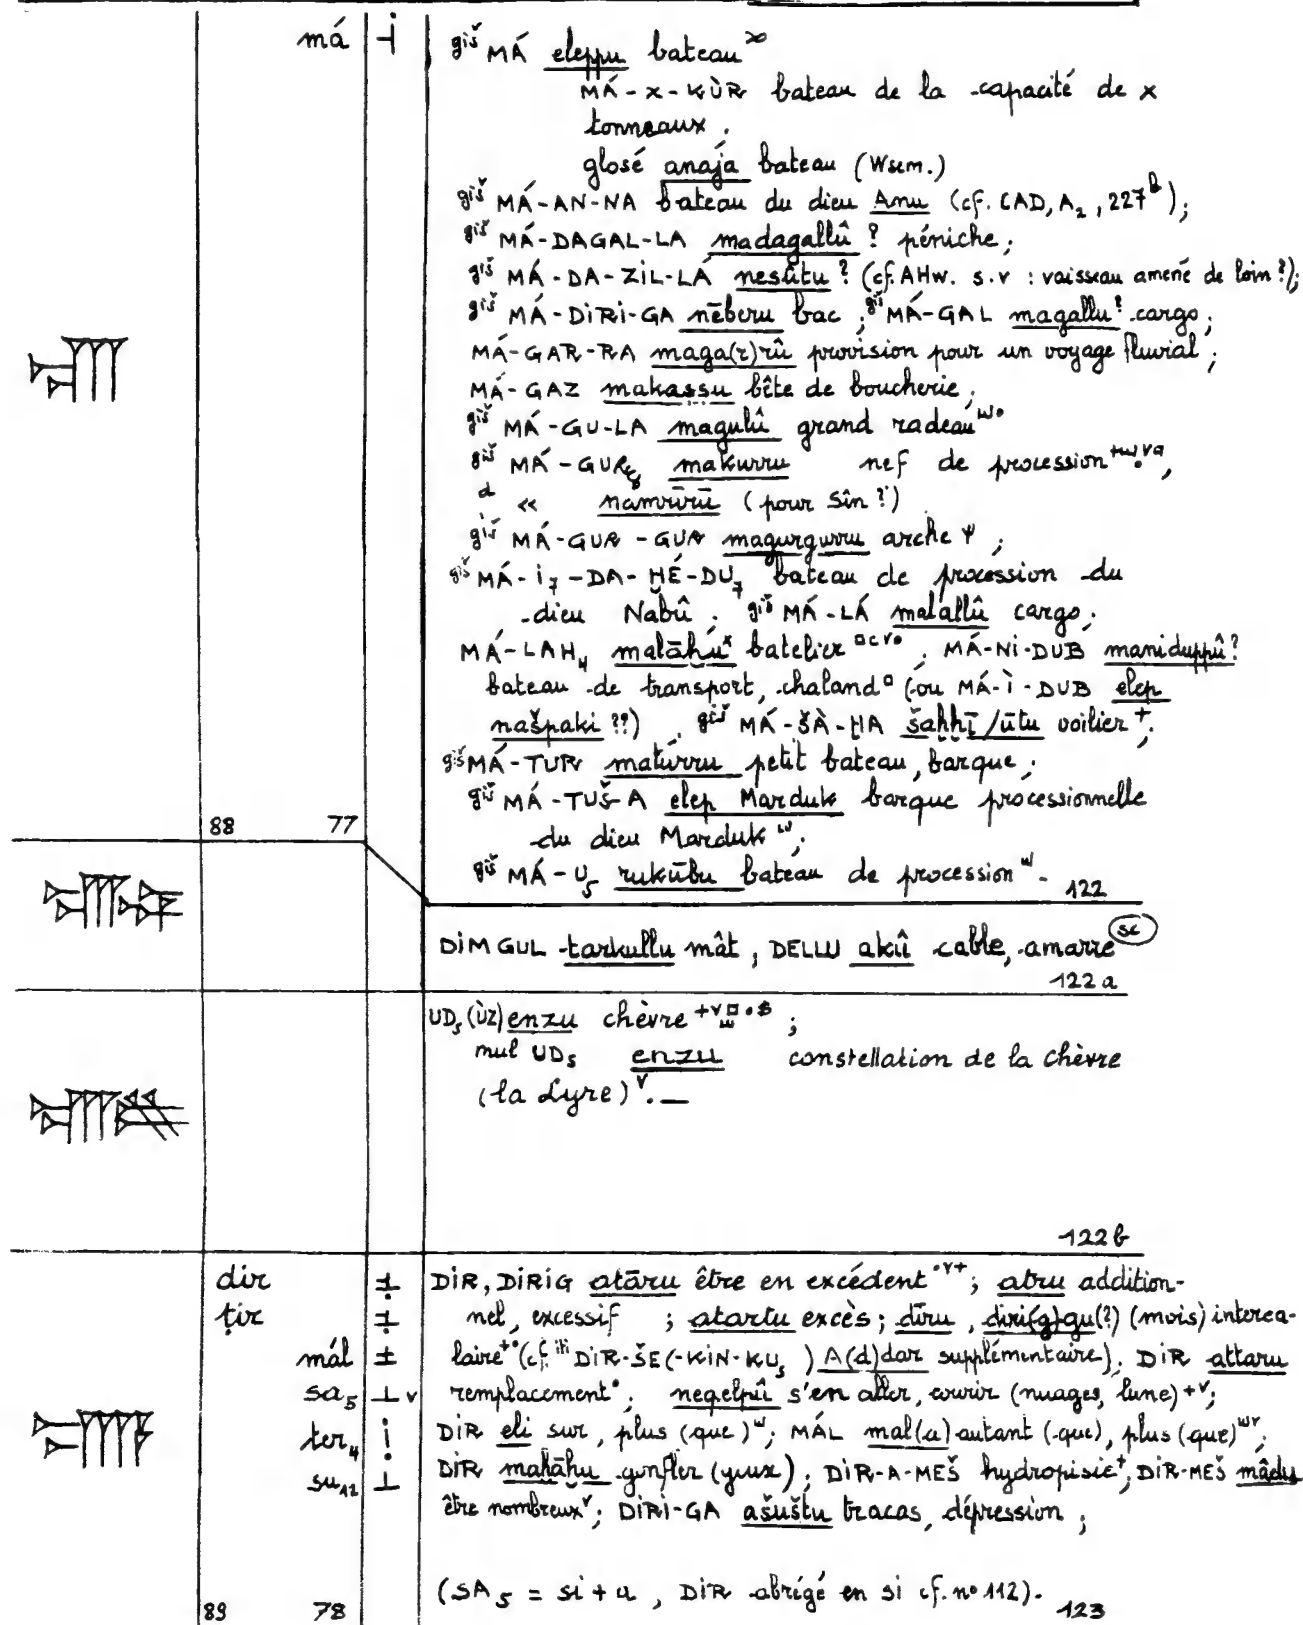 má giš MÁ eleppu bateau
MÁ-x-KÙR bateau de la capacité de x
tonneaux.
glosé anaja bateau (Wsem.)
giš MÁ-AN-NA bateau du dieu Anu (cf. CAD, A₂, 227ᵇ);
giš MÁ-DAGAL-LA madagallû ? péniche;
giš MÁ-DA-ZIL-LÁ nesûtu ? (cf. AHw. s.v : vaisseau amené de loin ?);
giš MÁ-DIRI-GA nēberu bac ; giš MÁ-GAL magallu? cargo;
MÁ-GAR-RA maga(r)rû provision pour un voyage fluvial;
MÁ-GAZ makaṣṣu bête de boucherie;
giš MÁ-GU-LA magulû grand radeau
giš MÁ-GUR₈ makurru nef de procession
d « namrīrū (pour Sîn ?)
giš MÁ-GUR-GUR magurgurru arche ;
giš MÁ-I₇-DA-ḪÉ-DU₇ bateau de procession du
dieu Nabû ; giš MÁ-LÁ malallû cargo;
MÁ-LAḪ₄ malāḫu batelier ; MÁ-NI-DUB maniduppû?
bateau de transport, chaland (ou MÁ-Ì-DUB elep
našpaki ??) . giš MÁ-ŠÀ-ḪA šaḫḫī/ūtu voilier +;
giš MÁ-TUR maturru petit bateau, barque;
giš MÁ-TUŠ-A elep Marduk barque processionnelle
du dieu Marduk ;
88 77
giš MÁ-U₅ rukūbu bateau de procession .
122
DIMGUL tarkullu mât, DELLU akû cable, amarre (sc)
122 a
UD₅ (ÙZ) enzu chèvre ;
mul UD₅ enzu constellation de la chèvre
(la Lyre) . —
122 b
dir DIR, DIRIG atāru être en excédent ; atru addition-
ṭir nel, excessif ; atartu excès; dīru, diri(g)gu(?) (mois) interca-
mál laire (cf. iti DIR-ŠE(-KIN-KU₅) A(d)dar supplémentaire); DIR attaru
sa₅ remplacement ; neqelpû s'en aller, courir (nuages, lune) ;
ter₄ DIR eli sur, plus (que) ; MÁL mal(a) autant (que), plus (que) ;
su₁₂ DIR maḫāḫu gonfler (yeux) ; DIR-A-MEŠ hydropisie +; DIR-MEŠ mâdu
être nombreux ; DIRI-GA ašuštu tracas, dépression ;
(SA₅ = si + a , DIR abrégé en si cf. n° 112).
89 78 123